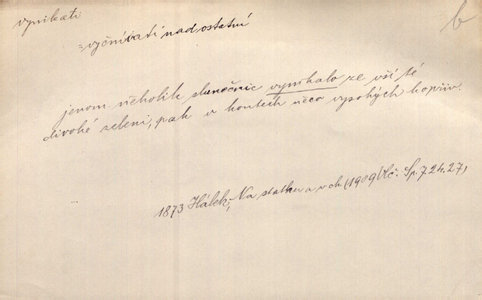 vynikati
b
vyčnívati nad ostatní
jenom několik slunečnic vynikalo ze vší té
divoké zeleni, pak v koutech něco vysokých kopřiv.
1873 Hálek, Na statku a v ch (1909 Vlč. Sp. 7.24.27,